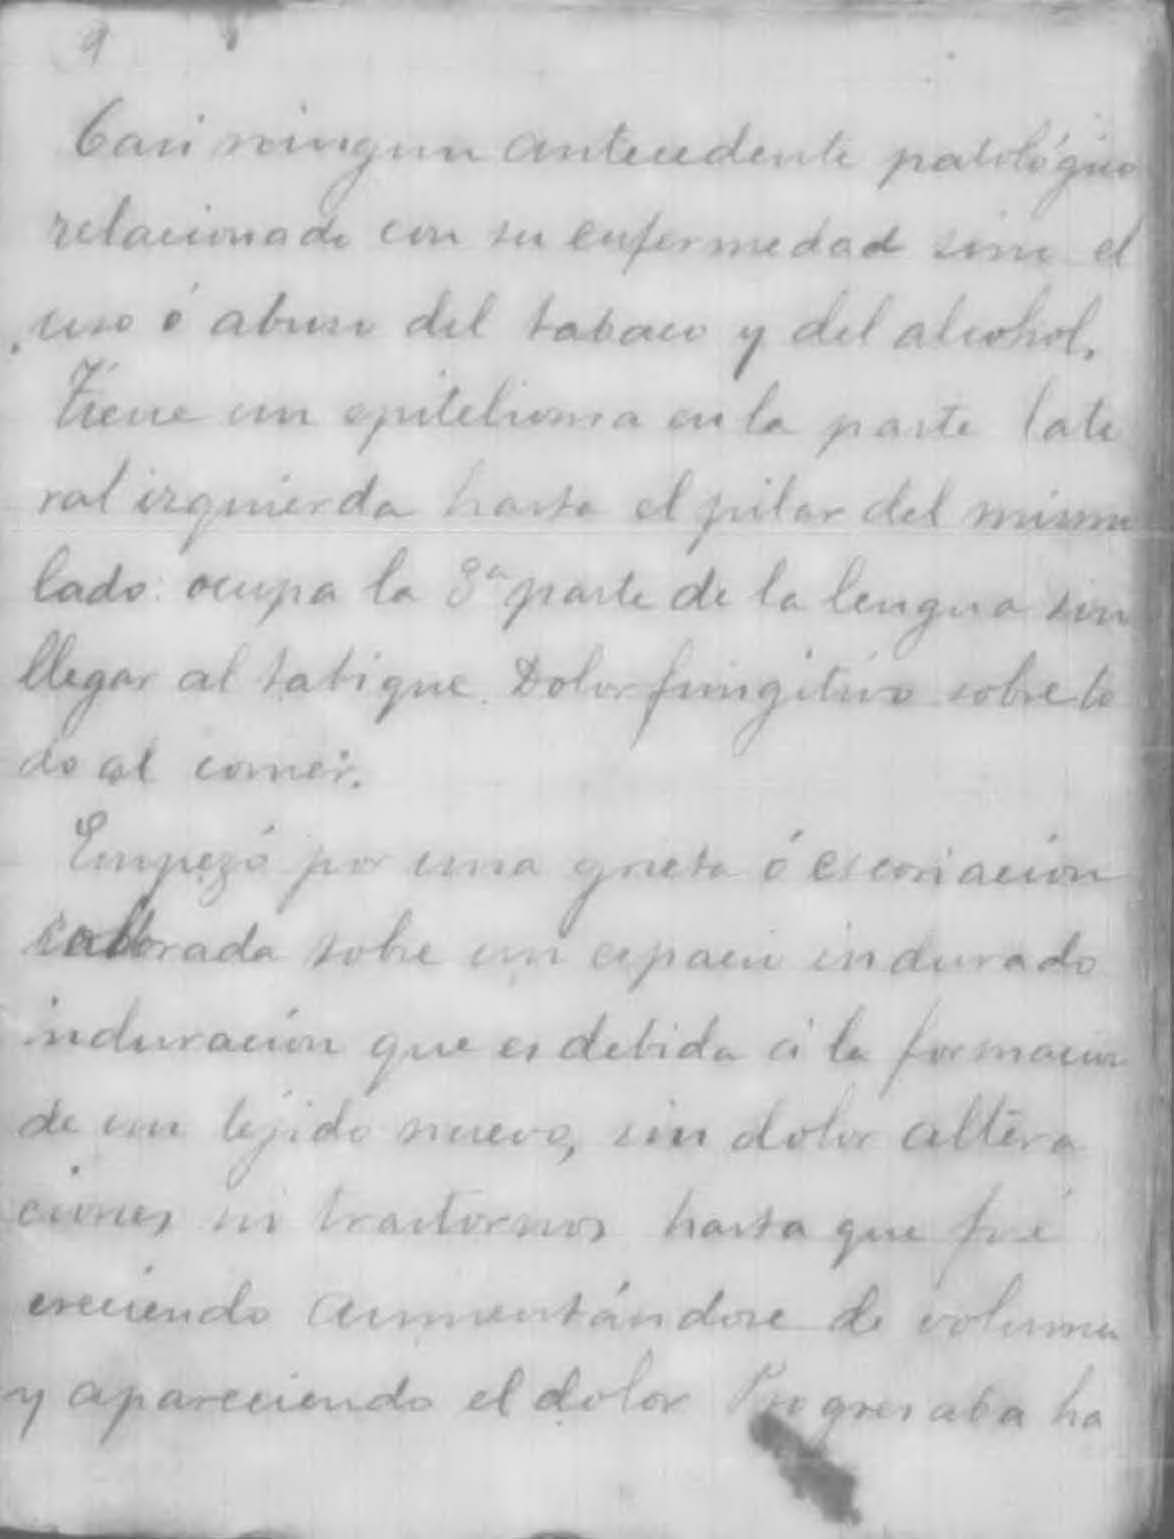 9
Casi ningun antecedente patológico
relacionado con su enfermedad sino el
uso ó abuso del tabaco y del alcohol.
Tiene un epitelioma en la parte late
ral izquierda hasta el pilar del mismo
lado: ocupa la 3ª parte de la lengua sin
llegar al tabique. Dolor fungitivo sobre to
do al comer.
Empezó por una grieta ó escoriación
sobre un espacio indurado
induración que es debida á la formacion
de un tejido nuevo, sin dolor altera
ciones ni trastornos hasta que fué
creciendo aumentándose de volumen
y apareciendo el dolor Progresaba ha